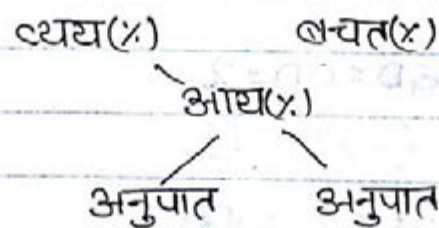 व्यय(%) बचत(%)
आय(%)
अनुपात अनुपात